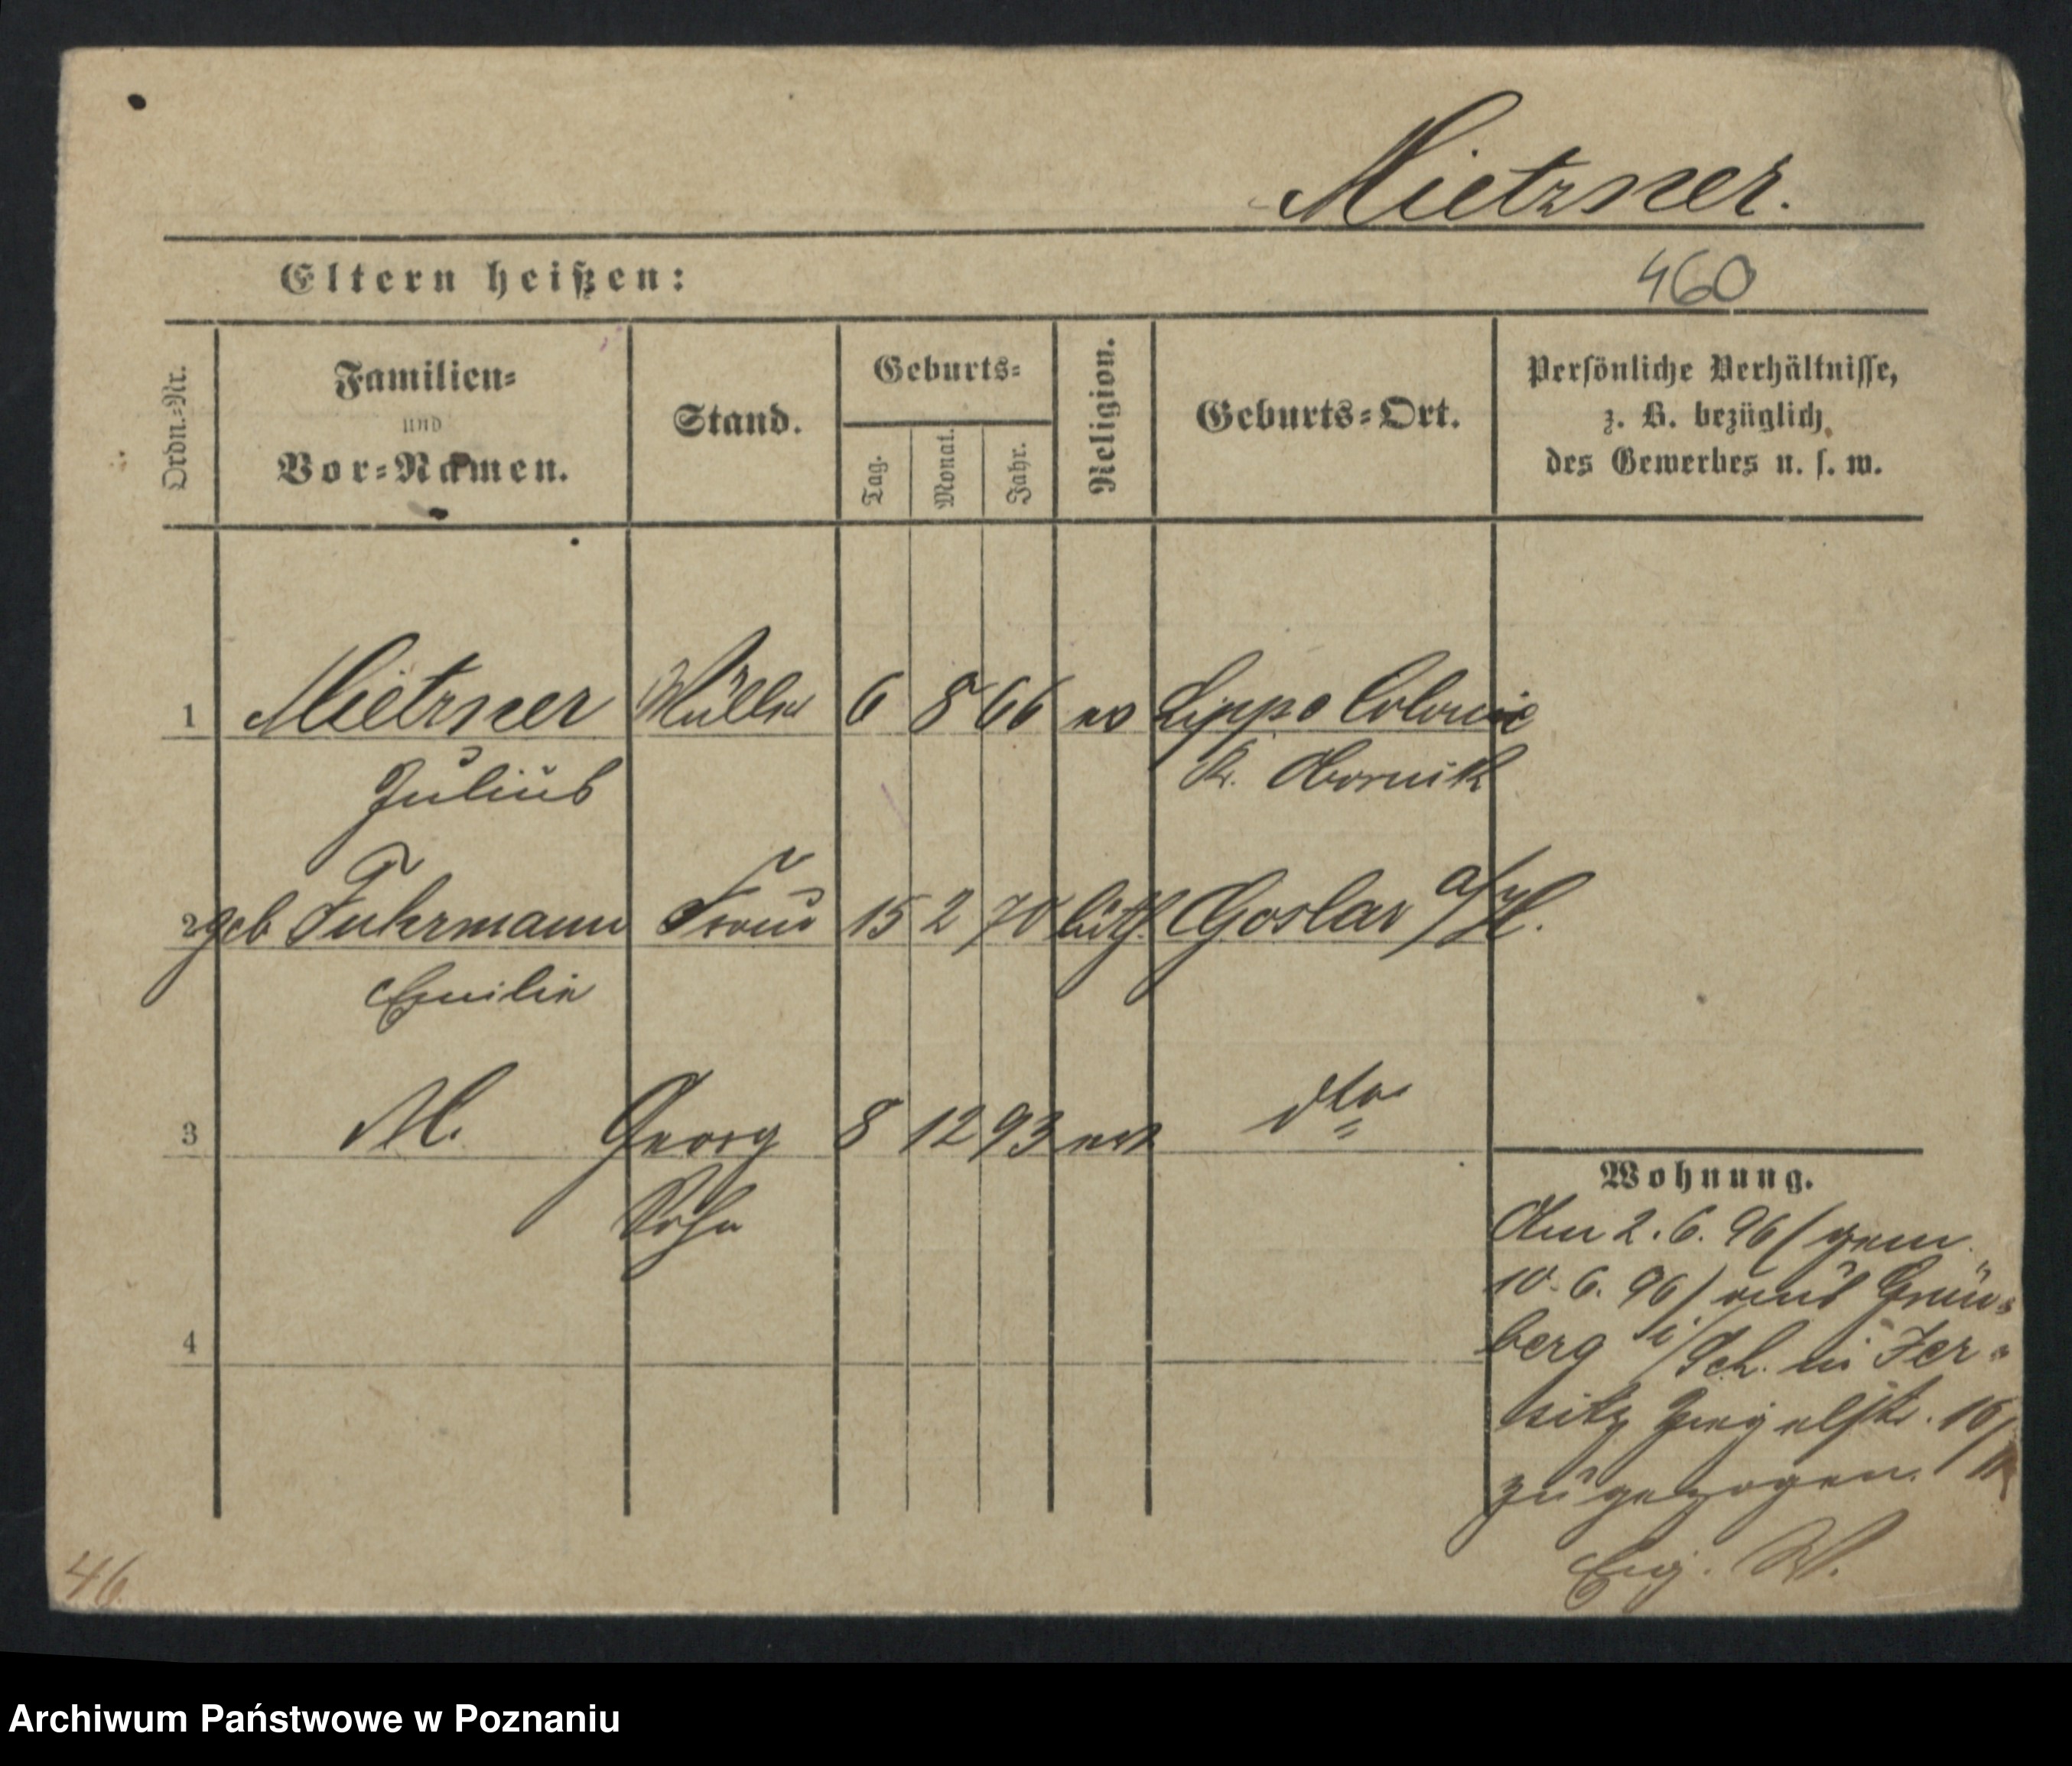 Mietzner.
Eltern heißen:
460
Ordn.=Nr.
Familien=
und
Vor=Namen.
Stand.
Geburts=
Tag.
Monat.
Jahr.
Religion.
Geburts=Ort.
Persönliche Verhältnisse,
z. B. bezüglich
des Gewerbes u. s. w.
1 Mietzner Müller 6 8 66 ev Lippe Colonie
Julius Kr. Obornik
2 geb Fuhrmann Frau 15 2 70 luth. Goslar a/H.
Emilie
3 M. Georg 8 12 93 dto
Sohn
4
Wohnung.
Am 2. 6. 96 (gem
10. 6. 96) aus Grün=
berg i/Sch. in Jer=
sitz Ziegelstr. 16/
zugezogen.
W.
46
Archiwum Państwowe w Poznaniu